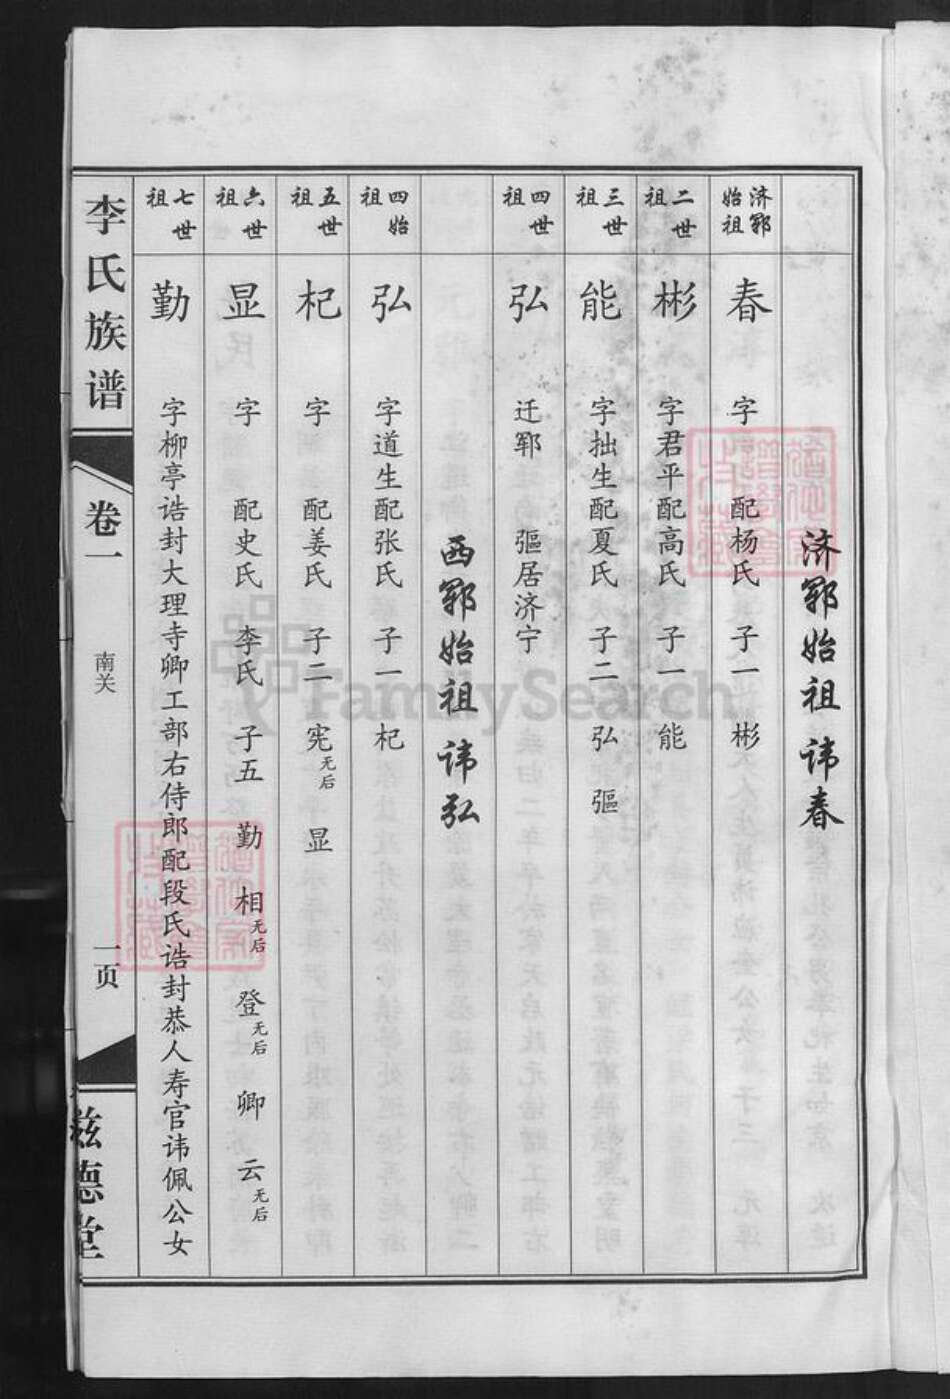 济郓始祖讳春
济郓始祖
春
字 配杨氏 子一 彬
二世祖
彬
字君平配高氏 子一 能
三世祖
能
字拙生配夏氏 子二 弘 彄
四世祖
弘
迁郓 彄居济宁
西郓始祖讳弘
四始祖
弘
字道生配张氏 子一 杞
五世祖
杞
字 配姜氏 子二 宪无后 显
六世祖
显
字 配史氏 李氏 子五 勤 相无后 登无后 卿 云无后
七世祖
勤
字柳亭诰封大理寺卿工部右侍郎配段氏诰封恭人寿官讳佩公女
李氏族谱
卷一
南关
一页
兹德堂
FamilySearch